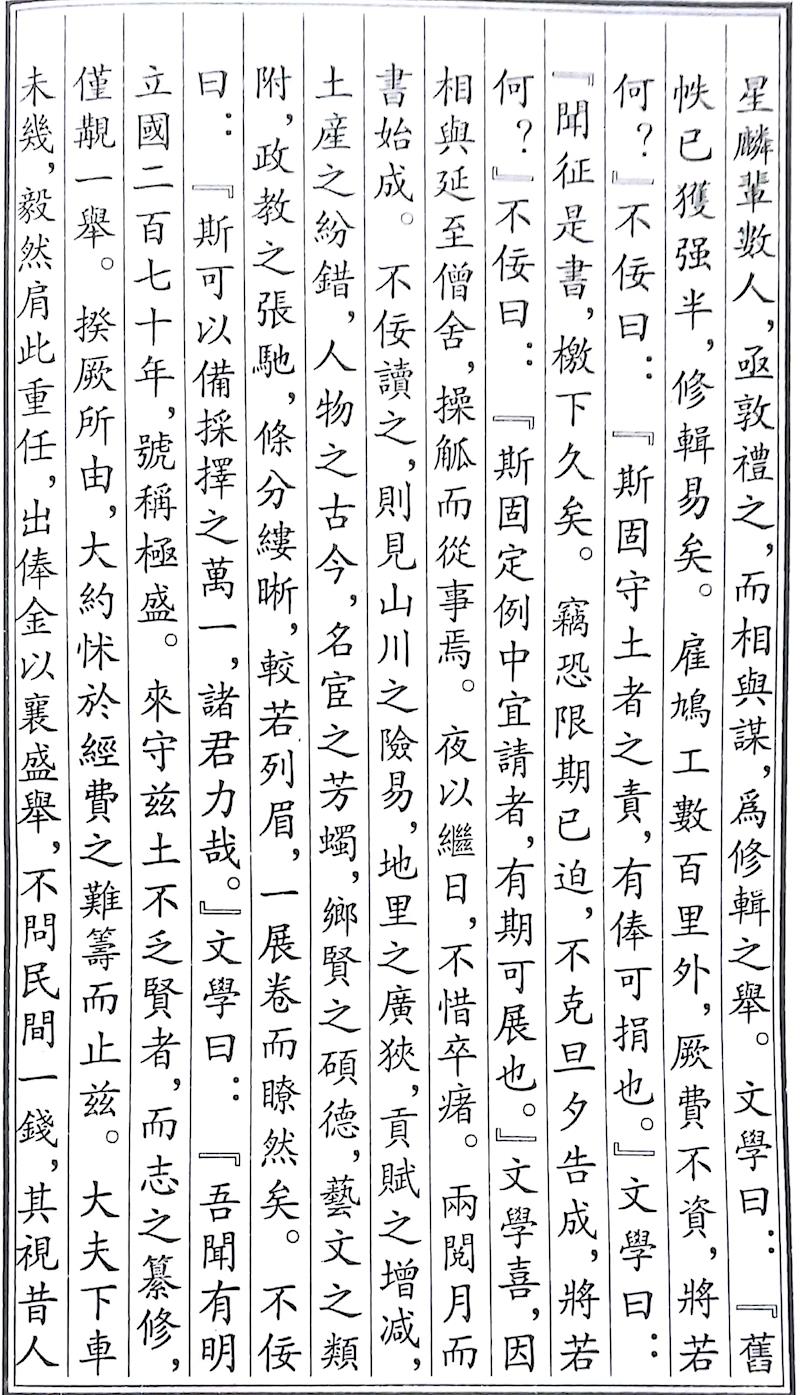 星麟輩数人，亟敦禮之，而相與謀，爲修輯之舉。文學曰：『舊
帙已獲强半，修輯易矣。雇鳩工數百里外，厥費不資，將若
何？』不佞曰：『斯固守土者之責，有俸可捐也。』文學曰：
『聞征是書，檄下久矣。竊恐限期已迫，不克旦夕告成，將若
何？』不佞曰：『斯固定例中宜請者，有期可展也。』文學喜，因
相與延至僧舍，操觚而從事焉。夜以繼日，不惜卒瘏。兩閲月而
書始成。不佞讀之，則見山川之險易，地里之廣狹，貢賦之增減，
土産之紛錯，人物之古今，名宦之芳蠋，鄉賢之碩德，藝文之類
附，政教之張馳，條分縷晰，較若列眉，一展卷而瞭然矣。不佞
曰：『斯可以備採擇之萬一，諸君力哉。』文學曰：『吾聞有明
立國二百七十年，號稱極盛。來守兹土不乏賢者，而志之纂修，
僅覯一舉。揆厥所由，大約怵於經費之難籌而止兹。大夫下車
未幾，毅然肩此重任，出俸金以襄盛舉，不問民間一錢，其視昔人